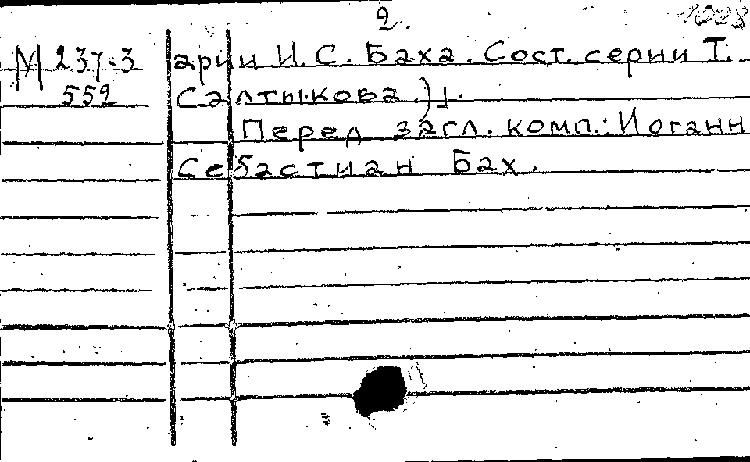 2.
М 237-3 арии И.С. Баха. Сост. серии Т.
559 Салтыкова.)⊥.
Перед загл. комп.: Иоганн
Себастиан Бах.